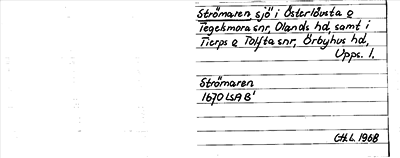 Strömaren sjö i Österlövsta o
Tegelsmora snr, Olands hd, samt i
Tierps o Tolfta snr, Örbyhus hd,
Upps. l.
Strömaren
1670 LSA B1
G.H.L. 1968